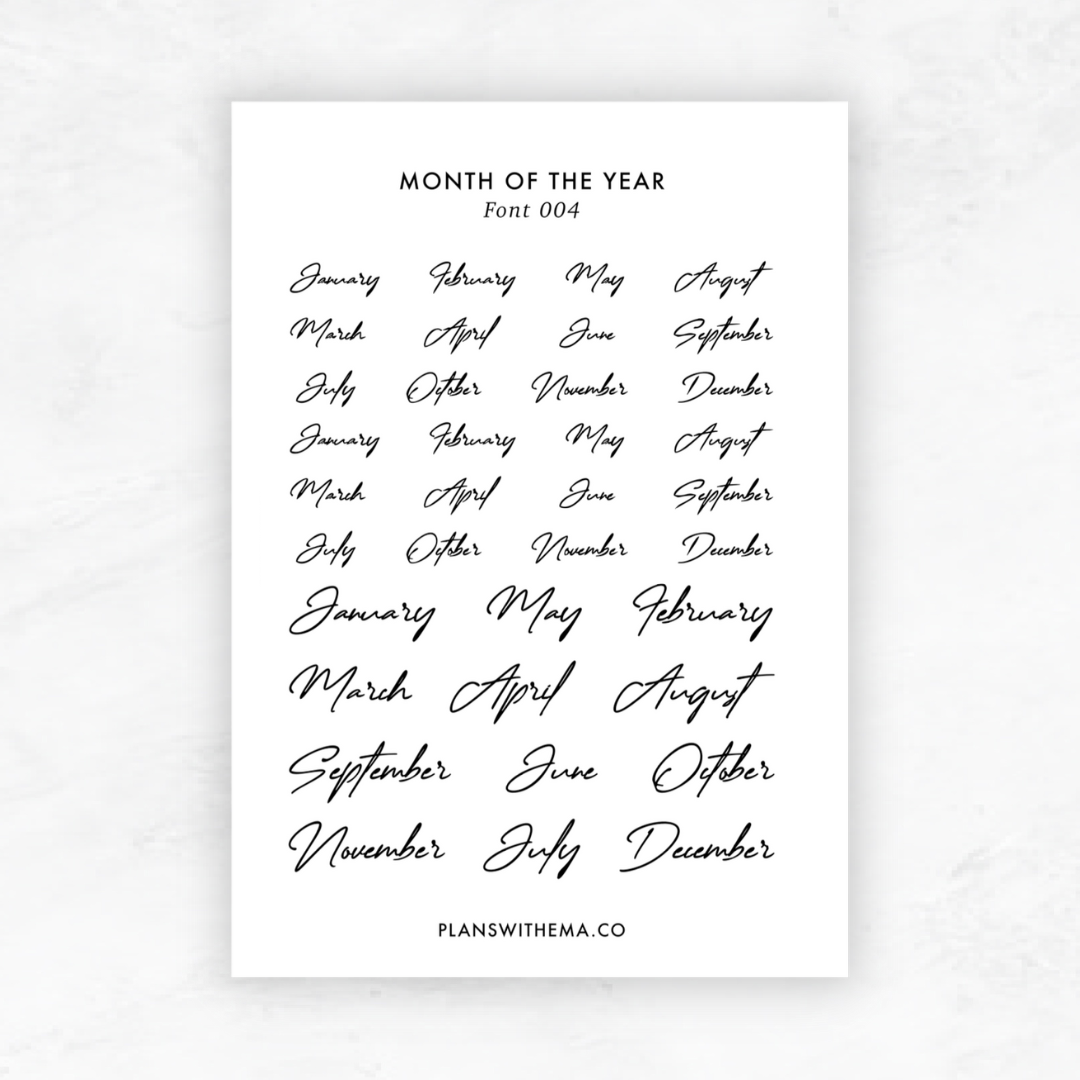 MONTH OF THE YEAR
Font 004
January February May August
March April June September
July October November December
January February May August
March April June September
July October November December
January May February
March April August
September June October
November July December
PLANSWITHEMA.CO